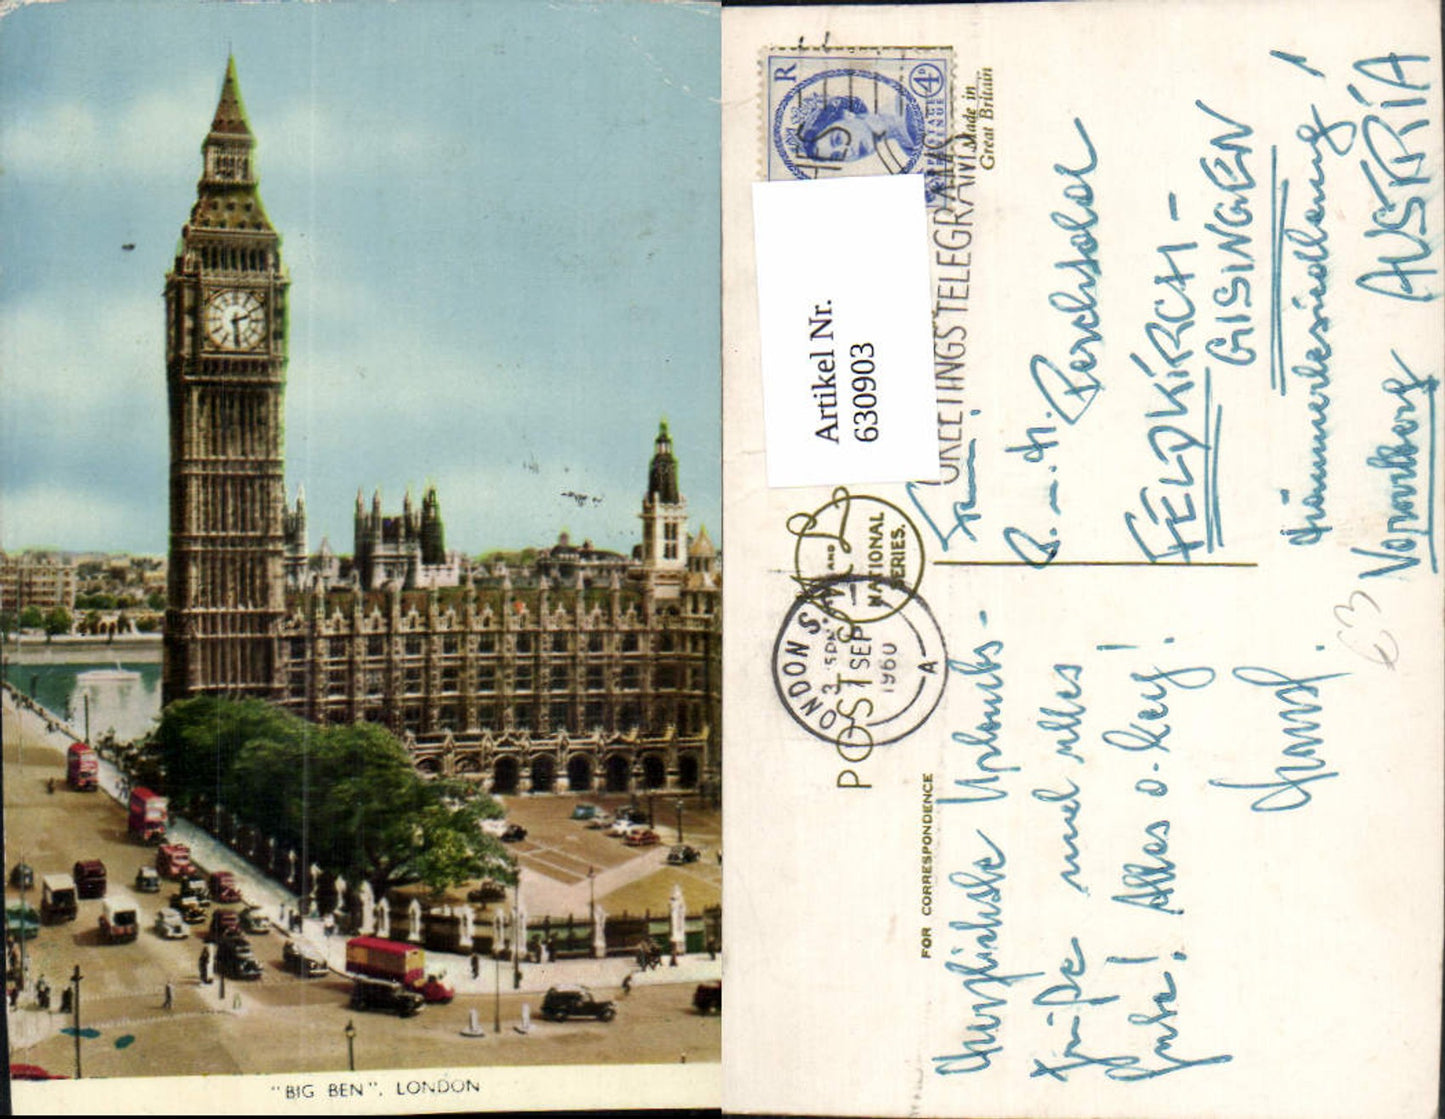 "BIG BEN", LONDON
R
4D
POSTAGE
REVENUE
Made in
Great Britain
Artikel Nr.
630903
GREETINGS TELEGRAMS
M AND L
NATIONAL
SERIES.
LONDON S.W.
3 15PM
1 SEP
1960
A
POST
FOR CORRESPONDENCE
Herzlichste Urlaubs-
Grüße und alles
Gute! Alles o-key!
Fam.
FELDKIRCH-
GISINGEN
Vorarlberg AUSTRIA
63